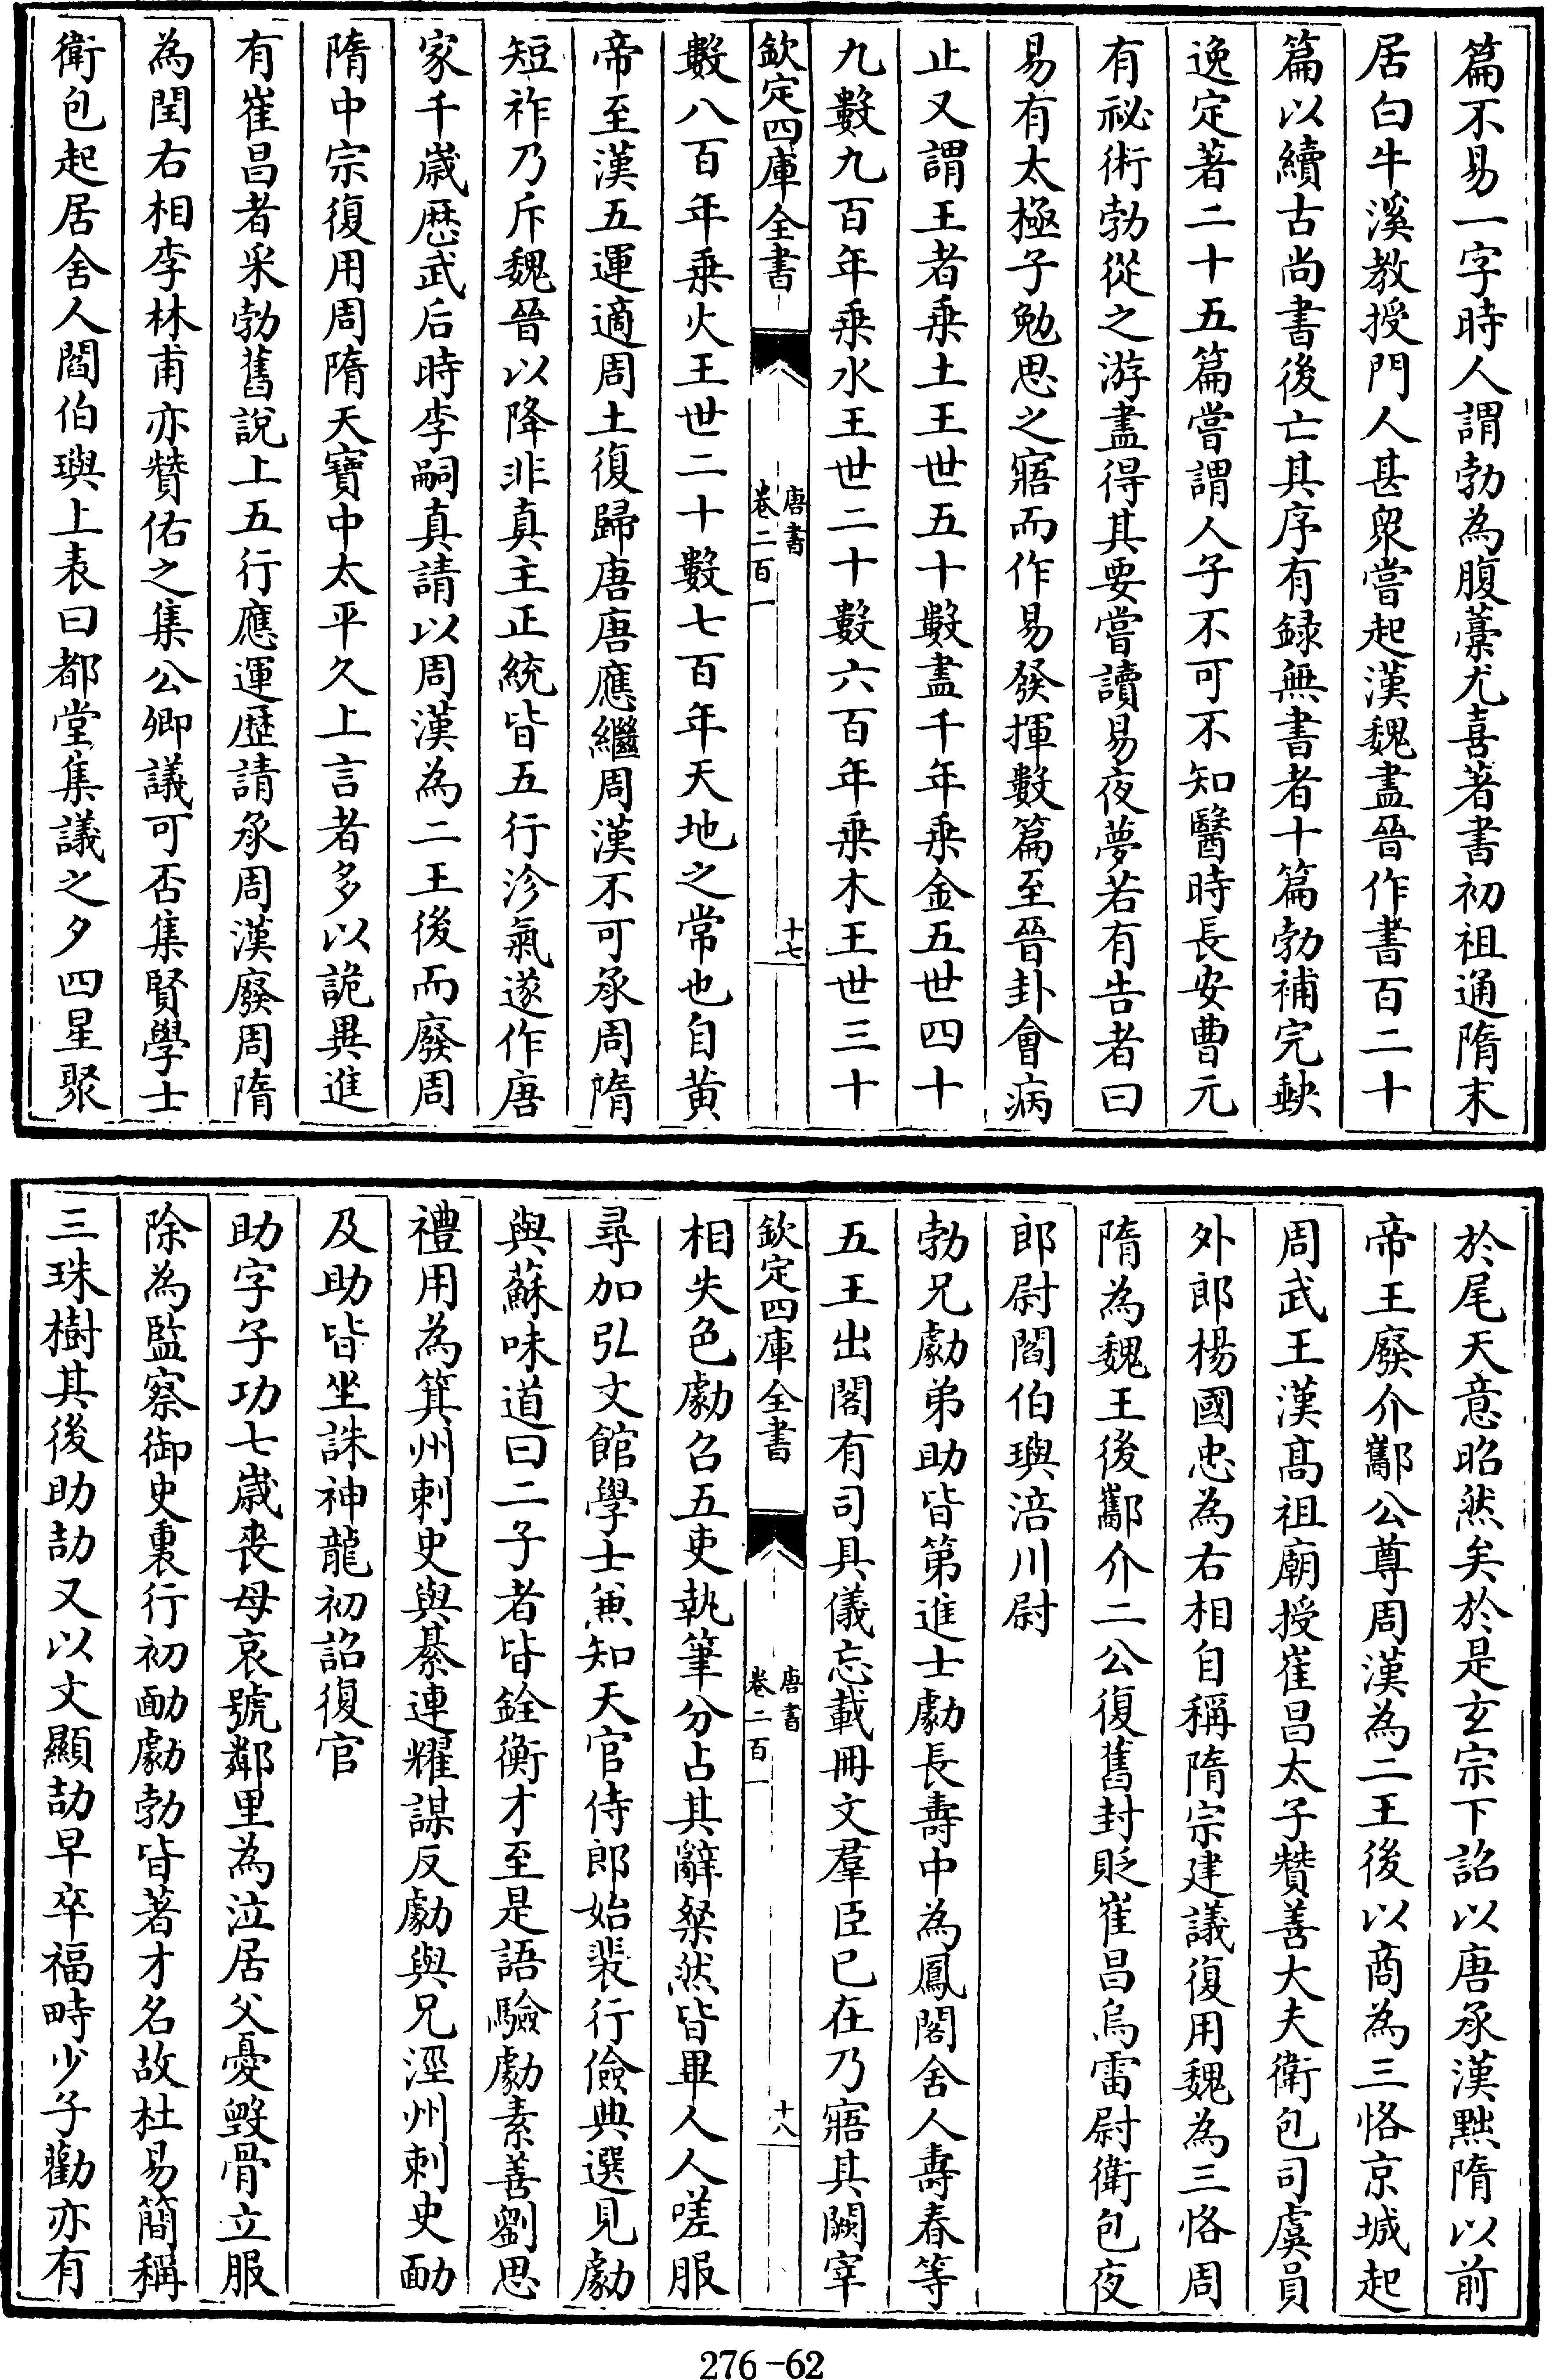 篇不易一字時人謂勃為腹藁尤喜著書初祖通隋末
居白牛溪教授門人甚衆嘗起漢魏盡晉作書百二十
篇以續古尚書後亡其序有録無書者十篇勃補完缺
逸定著二十五篇嘗謂人子不可不知醫時長安曹元
有祕術勃從之游盡得其要嘗讀易夜夢若有告者曰
易有太極子勉思之寤而作易發揮數篇至晉卦會病
止又謂王者乗土王世五十數盡千年乗金五世四十
九數九百年乗水王世二十數六百年乗木王世三十
欽定四庫全書
唐書
卷二百一
十七
數八百年乗火王世二十數七百年天地之常也自黄
帝至漢五運適周土復歸唐唐應繼周漢不可承周隋
短祚乃斥魏晉以降非真主正統皆五行沴氣遂作唐
家千嵗厯武后時李嗣真請以周漢為二王後而廢周
隋中宗復用周隋天寶中太平久上言者多以詭異進
有崔昌者采勃舊說上五行應運歴請承周漢廢周隋
為閏右相李林甫亦贊佑之集公卿議可否集賢學士
衛包起居舍人閻伯璵上表曰都堂集議之夕四星聚
於尾天意昭然矣於是玄宗下詔以唐承漢黜隋以前
帝王廢介酅公尊周漢為二王後以商為三恪京城起
周武王漢髙祖廟授崔昌太子贊善大夫衛包司虞員
外郎楊國忠為右相自稱隋宗建議復用魏為三恪周
隋為魏王後酅介二公復舊封貶崔昌烏雷尉衛包夜
郎尉閻伯璵涪川尉
勃兄勮弟助皆第進士勮長壽中為鳳閣舍人壽春等
五王出閣有司具儀忘載冊文羣臣已在乃寤其闕宰
欽定四庫全書
唐書
卷二百一
十八
相失色勮召五吏執筆分占其辭粲然皆畢人人嗟服
尋加弘文館學士兼知天官侍郎始裴行儉典選見勮
與蘇味道曰二子者皆銓衡才至是語驗勮素善劉思
禮用為箕州刺史與綦連耀謀反勮與兄涇州刺史勔
及助皆坐誅神龍初詔復官
助字子功七嵗喪母哀號鄰里為泣居父憂毀骨立服
除為監察御史裏行初勔勮勃皆著才名故杜易簡稱
三珠樹其後助劼又以文顯劼早卒福畤少子勸亦有
276-62